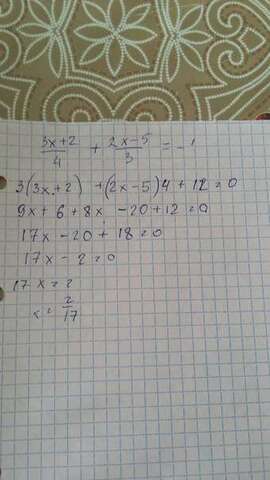 (3x+2)/4 + (2x-5)/3 = -1
3(3x+2) +(2x-5)4+12=0
9x+6+8x -20+12=0
17x-20+18=0
17x-2=0
17x=2
x=2/17